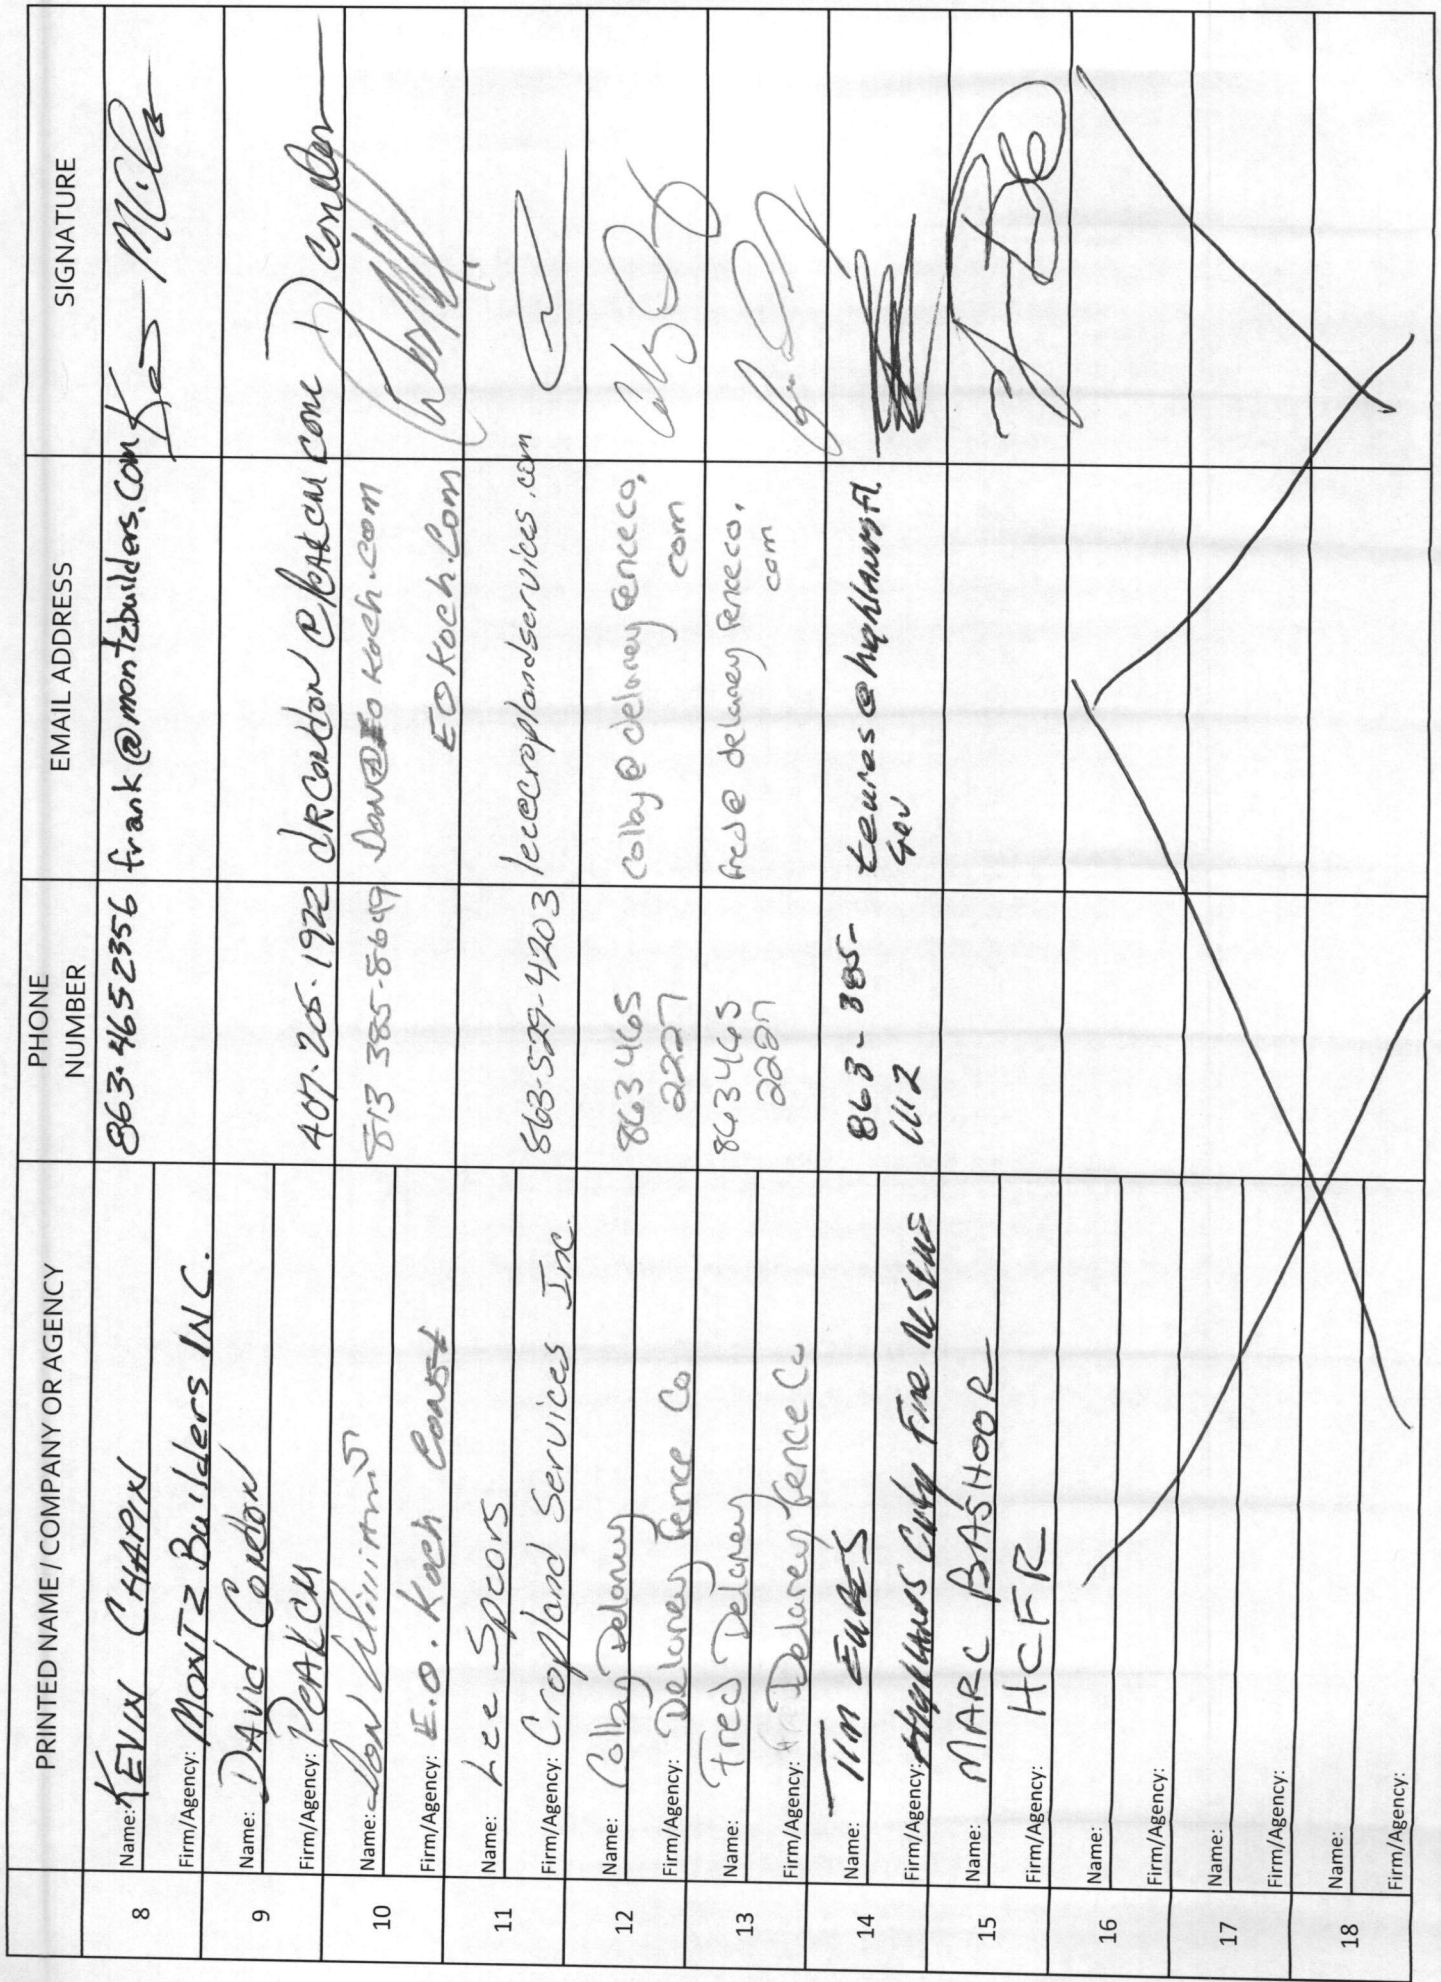 PRINTED NAME / COMPANY OR AGENCY
PHONE NUMBER
EMAIL ADDRESS
SIGNATURE
8
Name: KEVIN CHAPIN
Firm/Agency: MONTZ Builders INC.
863.465 2356
frank@montzbuilders.com
9
Name: DAVID CONDON
Firm/Agency: PEAK CM
407.205.1922
DRCONDON@PEAKCM.COM
10
Name: Don
Firm/Agency: E.O. Koch Const
813 385-8649
EOKoch.com
11
Name: Lee Spears
Firm/Agency: Cropland Services Inc.
863-529-4203
lee@croplandservices.com
12
Name: Colby Delaney
Firm/Agency: Delaney Fence Co
863 465
2227
colby@delaneyfenceco.
com
13
Name: Fred Delaney
Firm/Agency: Delaney Fence Co
863 465
2227
fred@delaneyfenceco.
com
14
Name: Tim EURES
Firm/Agency: Highlands County Fire Rescue
863-385-
1112
teures@highlandsfl.
gov
15
Name: MARC BASHOOR
Firm/Agency: HCFR
16
Name:
Firm/Agency:
17
Name:
Firm/Agency:
18
Name:
Firm/Agency: